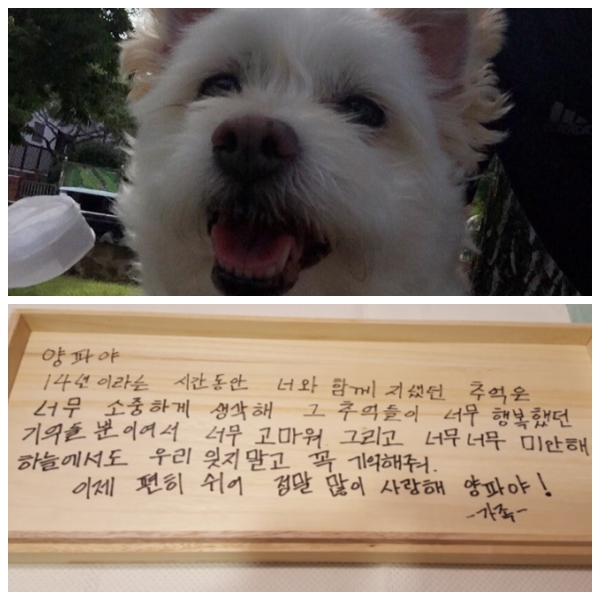 adidas
양파야
14년이라는 시간동안 너와 함께 지냈던 추억은
너무 소중하게 생각해 그 추억들이 너무 행복했던
기억들 뿐이여서 너무 고마워 그리고 너무너무 미안해
하늘에서도 우리 잊지말고 꼭 기억해주렴.
이제 편히 쉬어 정말 많이 사랑해 양파야!
-가족-